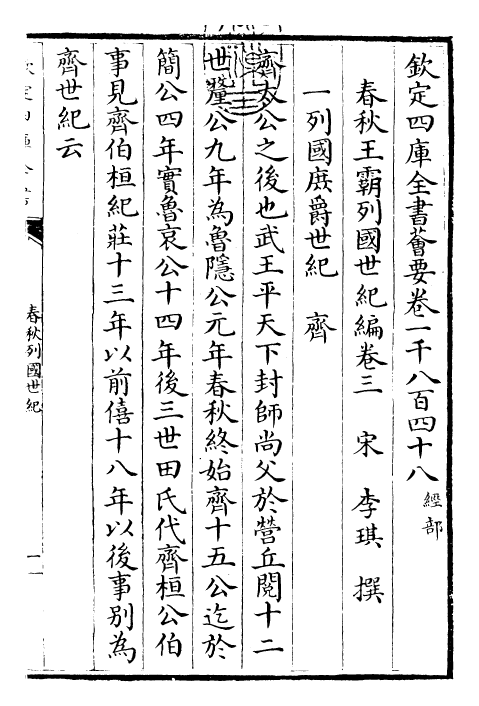 欽定四庫全書薈要卷一千八百四十八 經部
春秋王霸列國世紀編卷三 宋 李琪 撰
一列國庶爵世紀 齊
齊太公之後也武王平天下封師尚父於營丘閱十二
世釐公九年為魯隱公元年春秋終始齊十五公迄於
簡公四年實魯哀公十四年後三世田氏代齊桓公伯
事見齊伯桓紀莊十三年以前僖十八年以後事別為
齊世紀云
春秋列國世紀
一